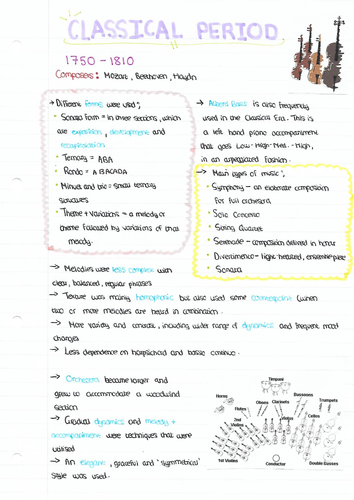 CLASSICAL PERIOD
1750 - 1810
Composers: Mozart, Beethoven, Haydn
→ Different forms were used;
• Sonata Form = in three sections, which
are exposition, development and
recapitulation
• Ternary = ABA
• Rondo = ABACADA
• Minuet and trio = small ternary
structures
• Theme + variations = a melody or
theme followed by variations of that
melody.
→ Alberti Bass is also frequently
used in the Classical Era. This is
a left hand piano accompaniment
that goes Low-High-Med.-High,
in an arpeggiated fashion.
→ Main types of music;
• Symphony - an elaborate composition
for full orchestra
• Solo Concerto
• String Quartet
• Serenade - composition delivered in honour
• Divertimento - light hearted, ensemble piece
• Sonata
→ Melodies were less complex with
clear, balanced, regular phrases
→ Texture was mainly homophonic but also used some counterpoint (when
two or more melodies are heard in combination.
→ More variety and contrast, including wider range of dynamics and frequent mood
changes
→ Less dependence on harpsichord and basso continuo.
→ Orchestra became larger and
grew to accommodate a woodwind
section
→ Gradual dynamics and melody +
accompaniment were techniques that were
utilised
→ An elegant, graceful and 'symmetrical'
style was used.
Timpani
Horns
Oboes
Clarinets
Bassoons
Trumpets
Flutes
2nd
Violins
Violas
Cellos
1st Violins
Conductor
Double Basses